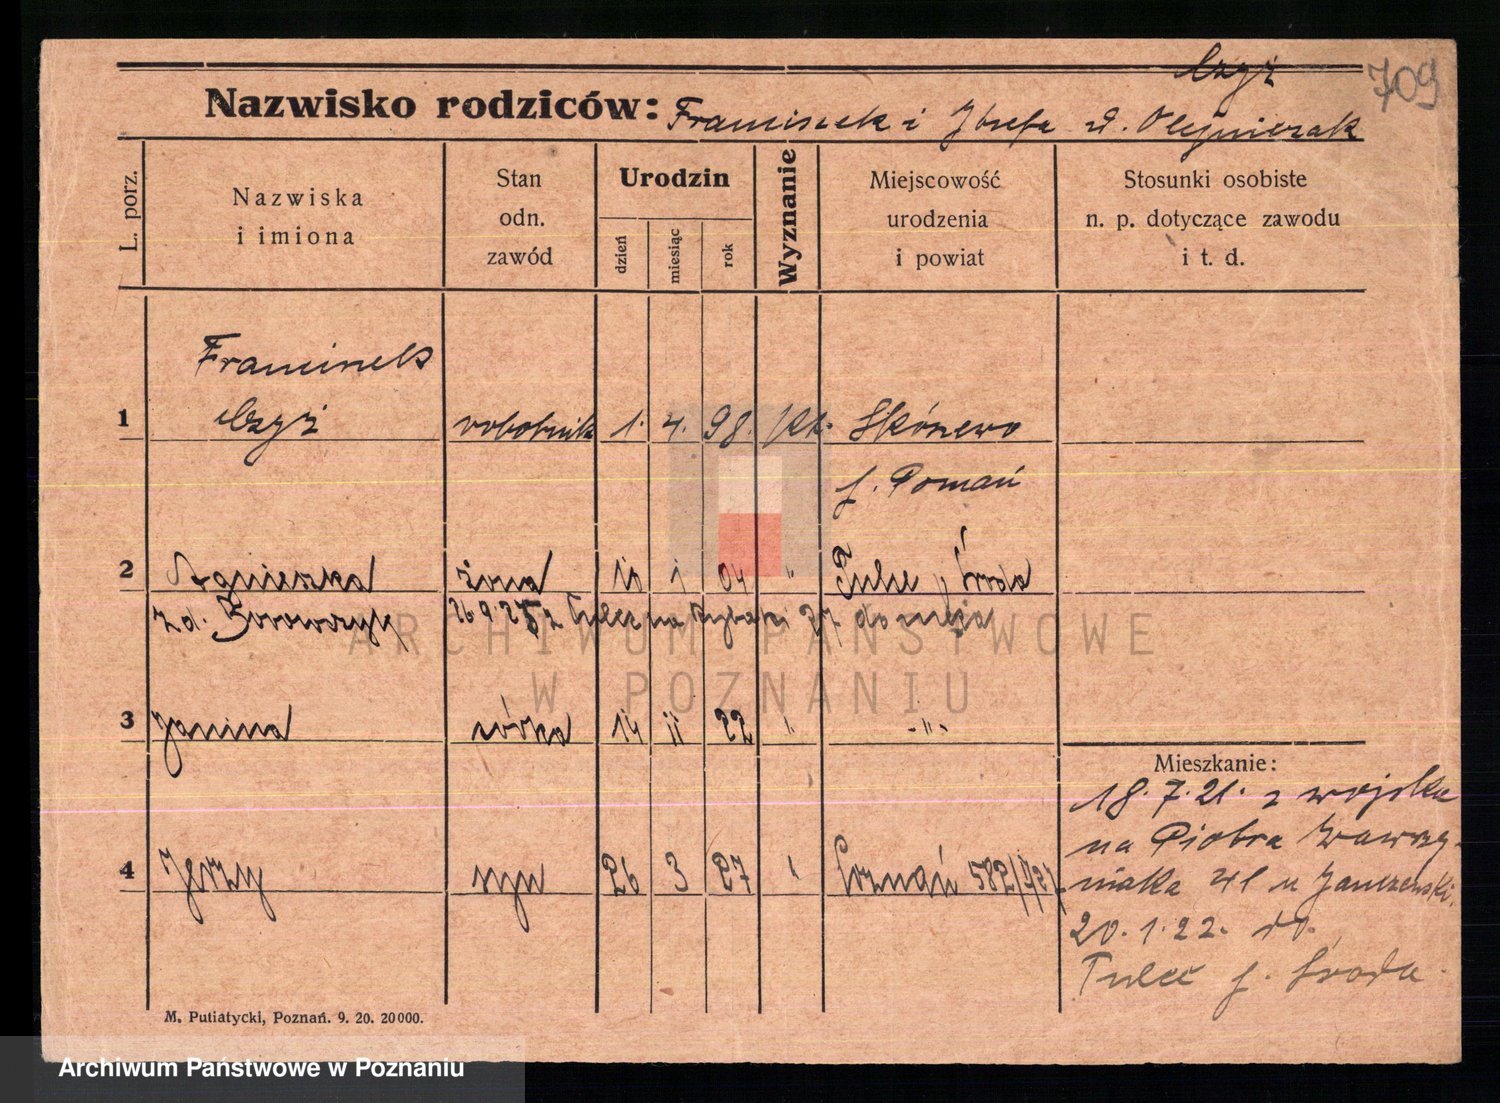 Czyż
709
Nazwisko rodziców: Franciszek i Józefa z d. Olejniczak
L. porz.
Nazwiska
i imiona
Stan
odn.
zawód
Urodzin
dzień
miesiąc
rok
Wyznanie
Miejscowość
urodzenia
i powiat
Stosunki osobiste
n. p. dotyczące zawodu
i t. d.
Franciszek
1 Czyż robotnik 1. 4. 98. kt. Skórzewo
p. Poznań
2 Agnieszka żona 10 1 04 " Tulce p. Środa
z d. Borowczyk 26.9.27 z Tulec na Rybaki 27 do męża
3 Janina córka 14 11 22 " -"-
4 Jerzy syn 26 3 27 Poznań 582/
Mieszkanie:
18.7.21. z wojska
na Piotra Wawrzy-
niaka 41 u Janczewski.
20.1.22. do
Tulce p. Środa.
M. Putiatycki, Poznań. 9. 20. 20000.
ARCHIWUM PAŃSTWOWE
W POZNANIU
Archiwum Państwowe w Poznaniu